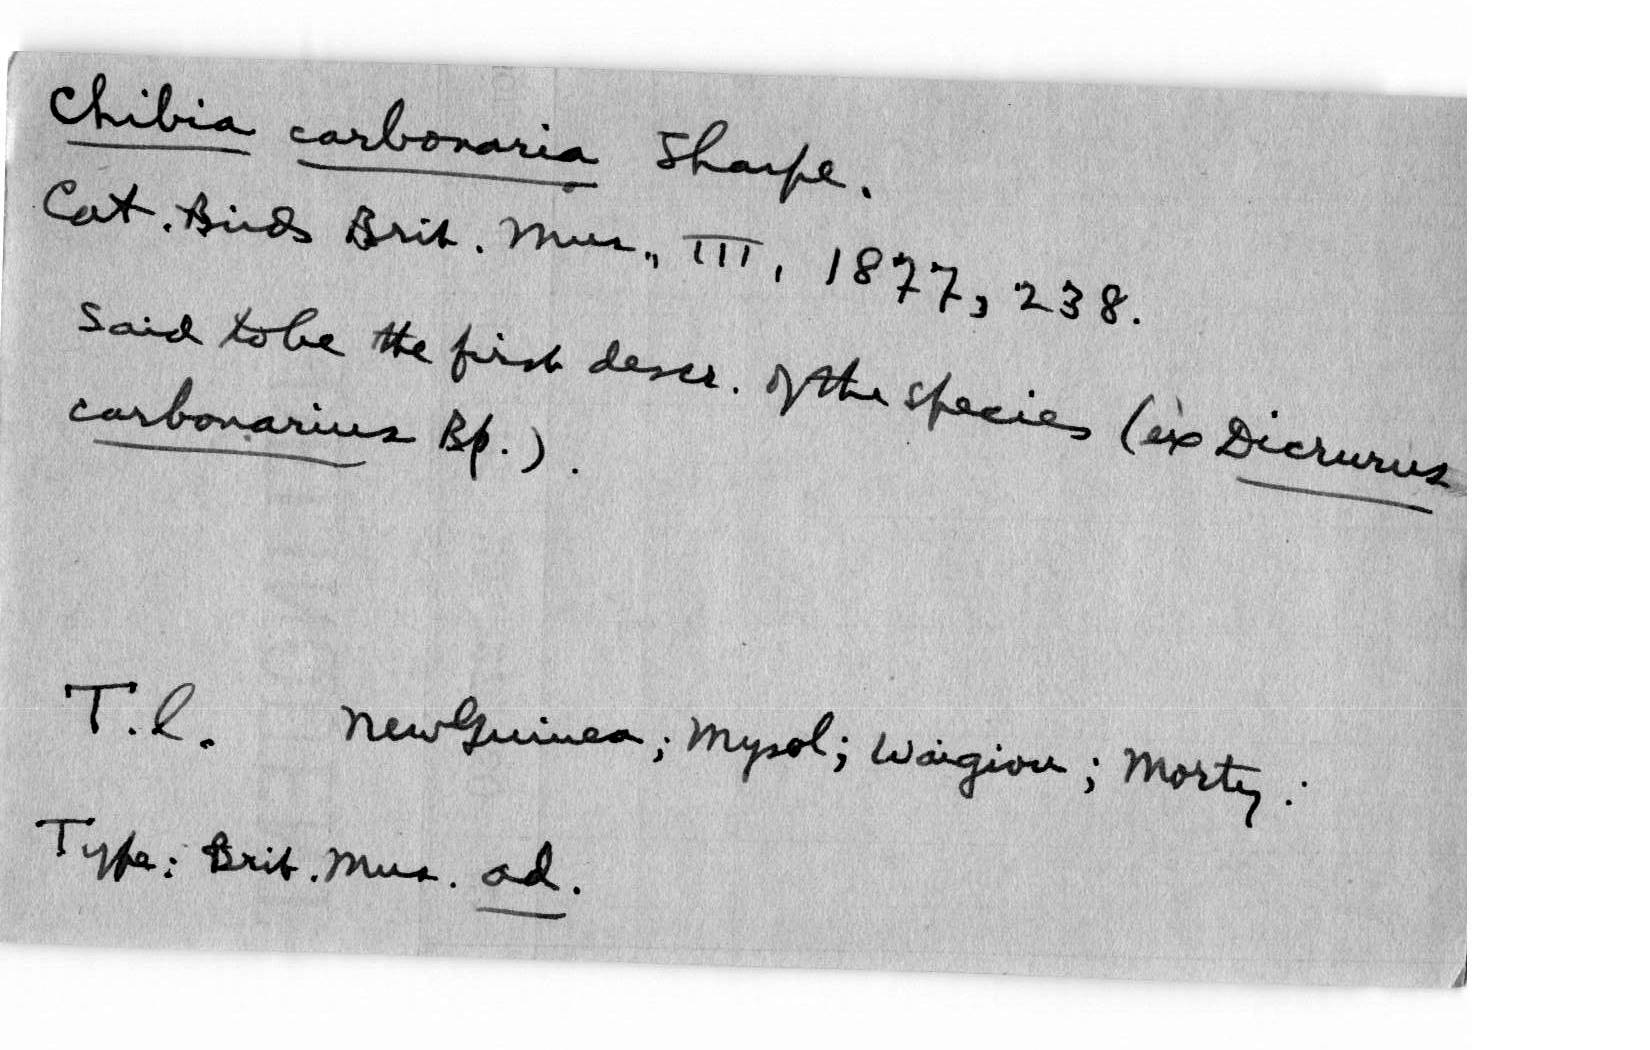 Chibia carbonaria Sharpe.
Cat. Birds Brit. Mus., III, 1877, 238.
Said to be the first descr. of the species (ex Dicrurus
carbonarius Bp.).
T.l. New Guinea; Mysol; Waigiou; Morty.:
Type: Brit. Mus. ad.